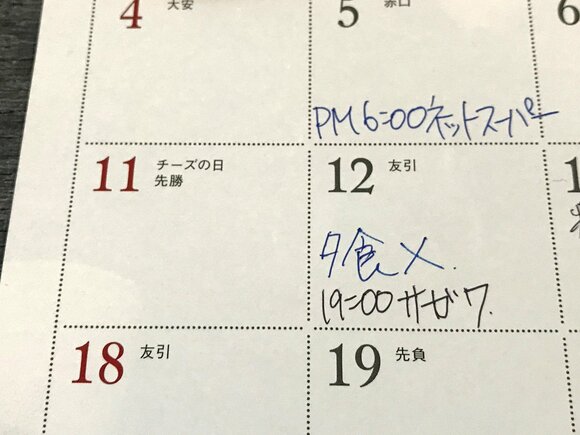 4 大安
5 赤口
6
PM6:00ネットスーパー
11 チーズの日
先勝
12 友引
夕食×.
19:00 サザワ.
18 友引
19 先負